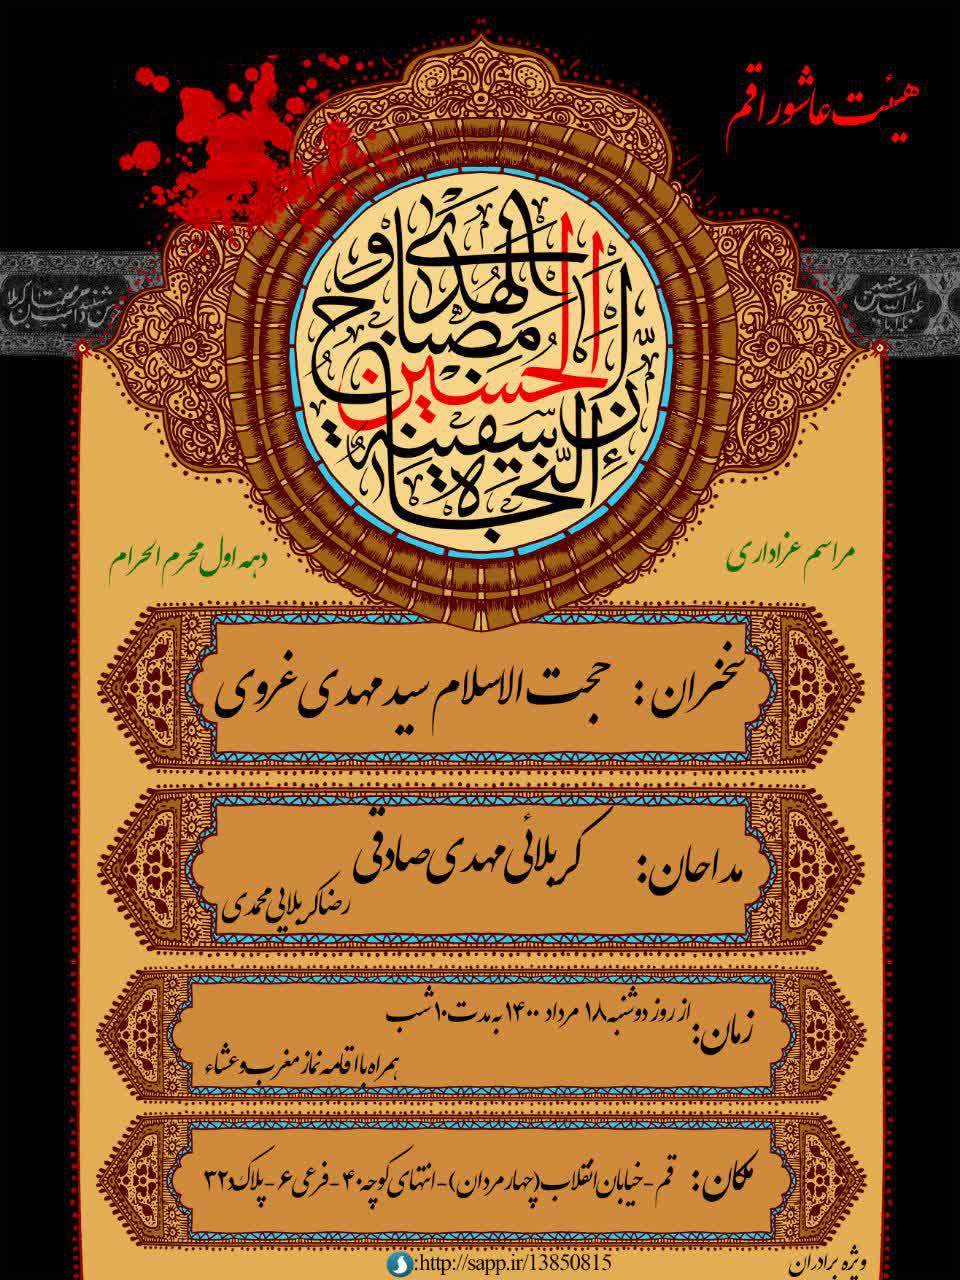 هیئت عاشورا قم
إن الحسین مصباح الهدی و سفینة النجاة
مراسم عزاداری
دهه اول محرم الحرام
سخنران : حجت الاسلام سید مهدی غروی
مداحان: کربلائی مهدی صادقی
رضا کربلایی محمدی
زمان: از روز دوشنبه ۱۸ مرداد ۱۴۰۰ به مدت ۱۰ شب
همراه با اقامه نماز مغرب و عشاء
مکان: قم - خیابان انقلاب (چهارمردان) - انتهای کوچه ۴۰ - فرعی ۶ - پلاک ۳۲د
:http://sapp.ir/13850815
ویژه برادران